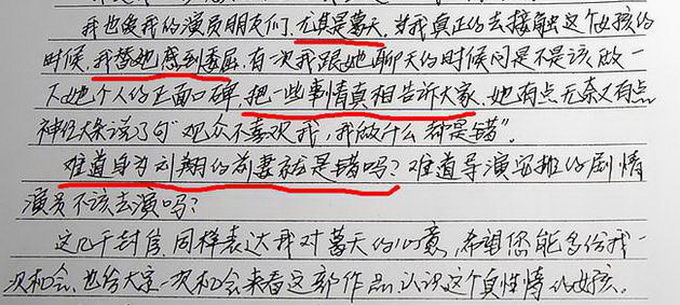 我也爱我的演员朋友们,尤其是葛天。当我真正的去接触这个女孩的
时候,我替她感到委屈。有次我跟她聊天的时候问是不是该做一
下她个人的正面口碑,把一些事情真相告诉大家,她有点无奈又有点
神经大条说了句“观众不喜欢我,我做什么都是错”。
难道身为刘翔的前妻就是错吗?难道导演安排的剧情
演员不该去演吗?
这几千封信,同样表达我对葛天的心意,希望您能多给我一
次机会,也给大家一次机会来看这部作品,认识这个真性情的女孩。